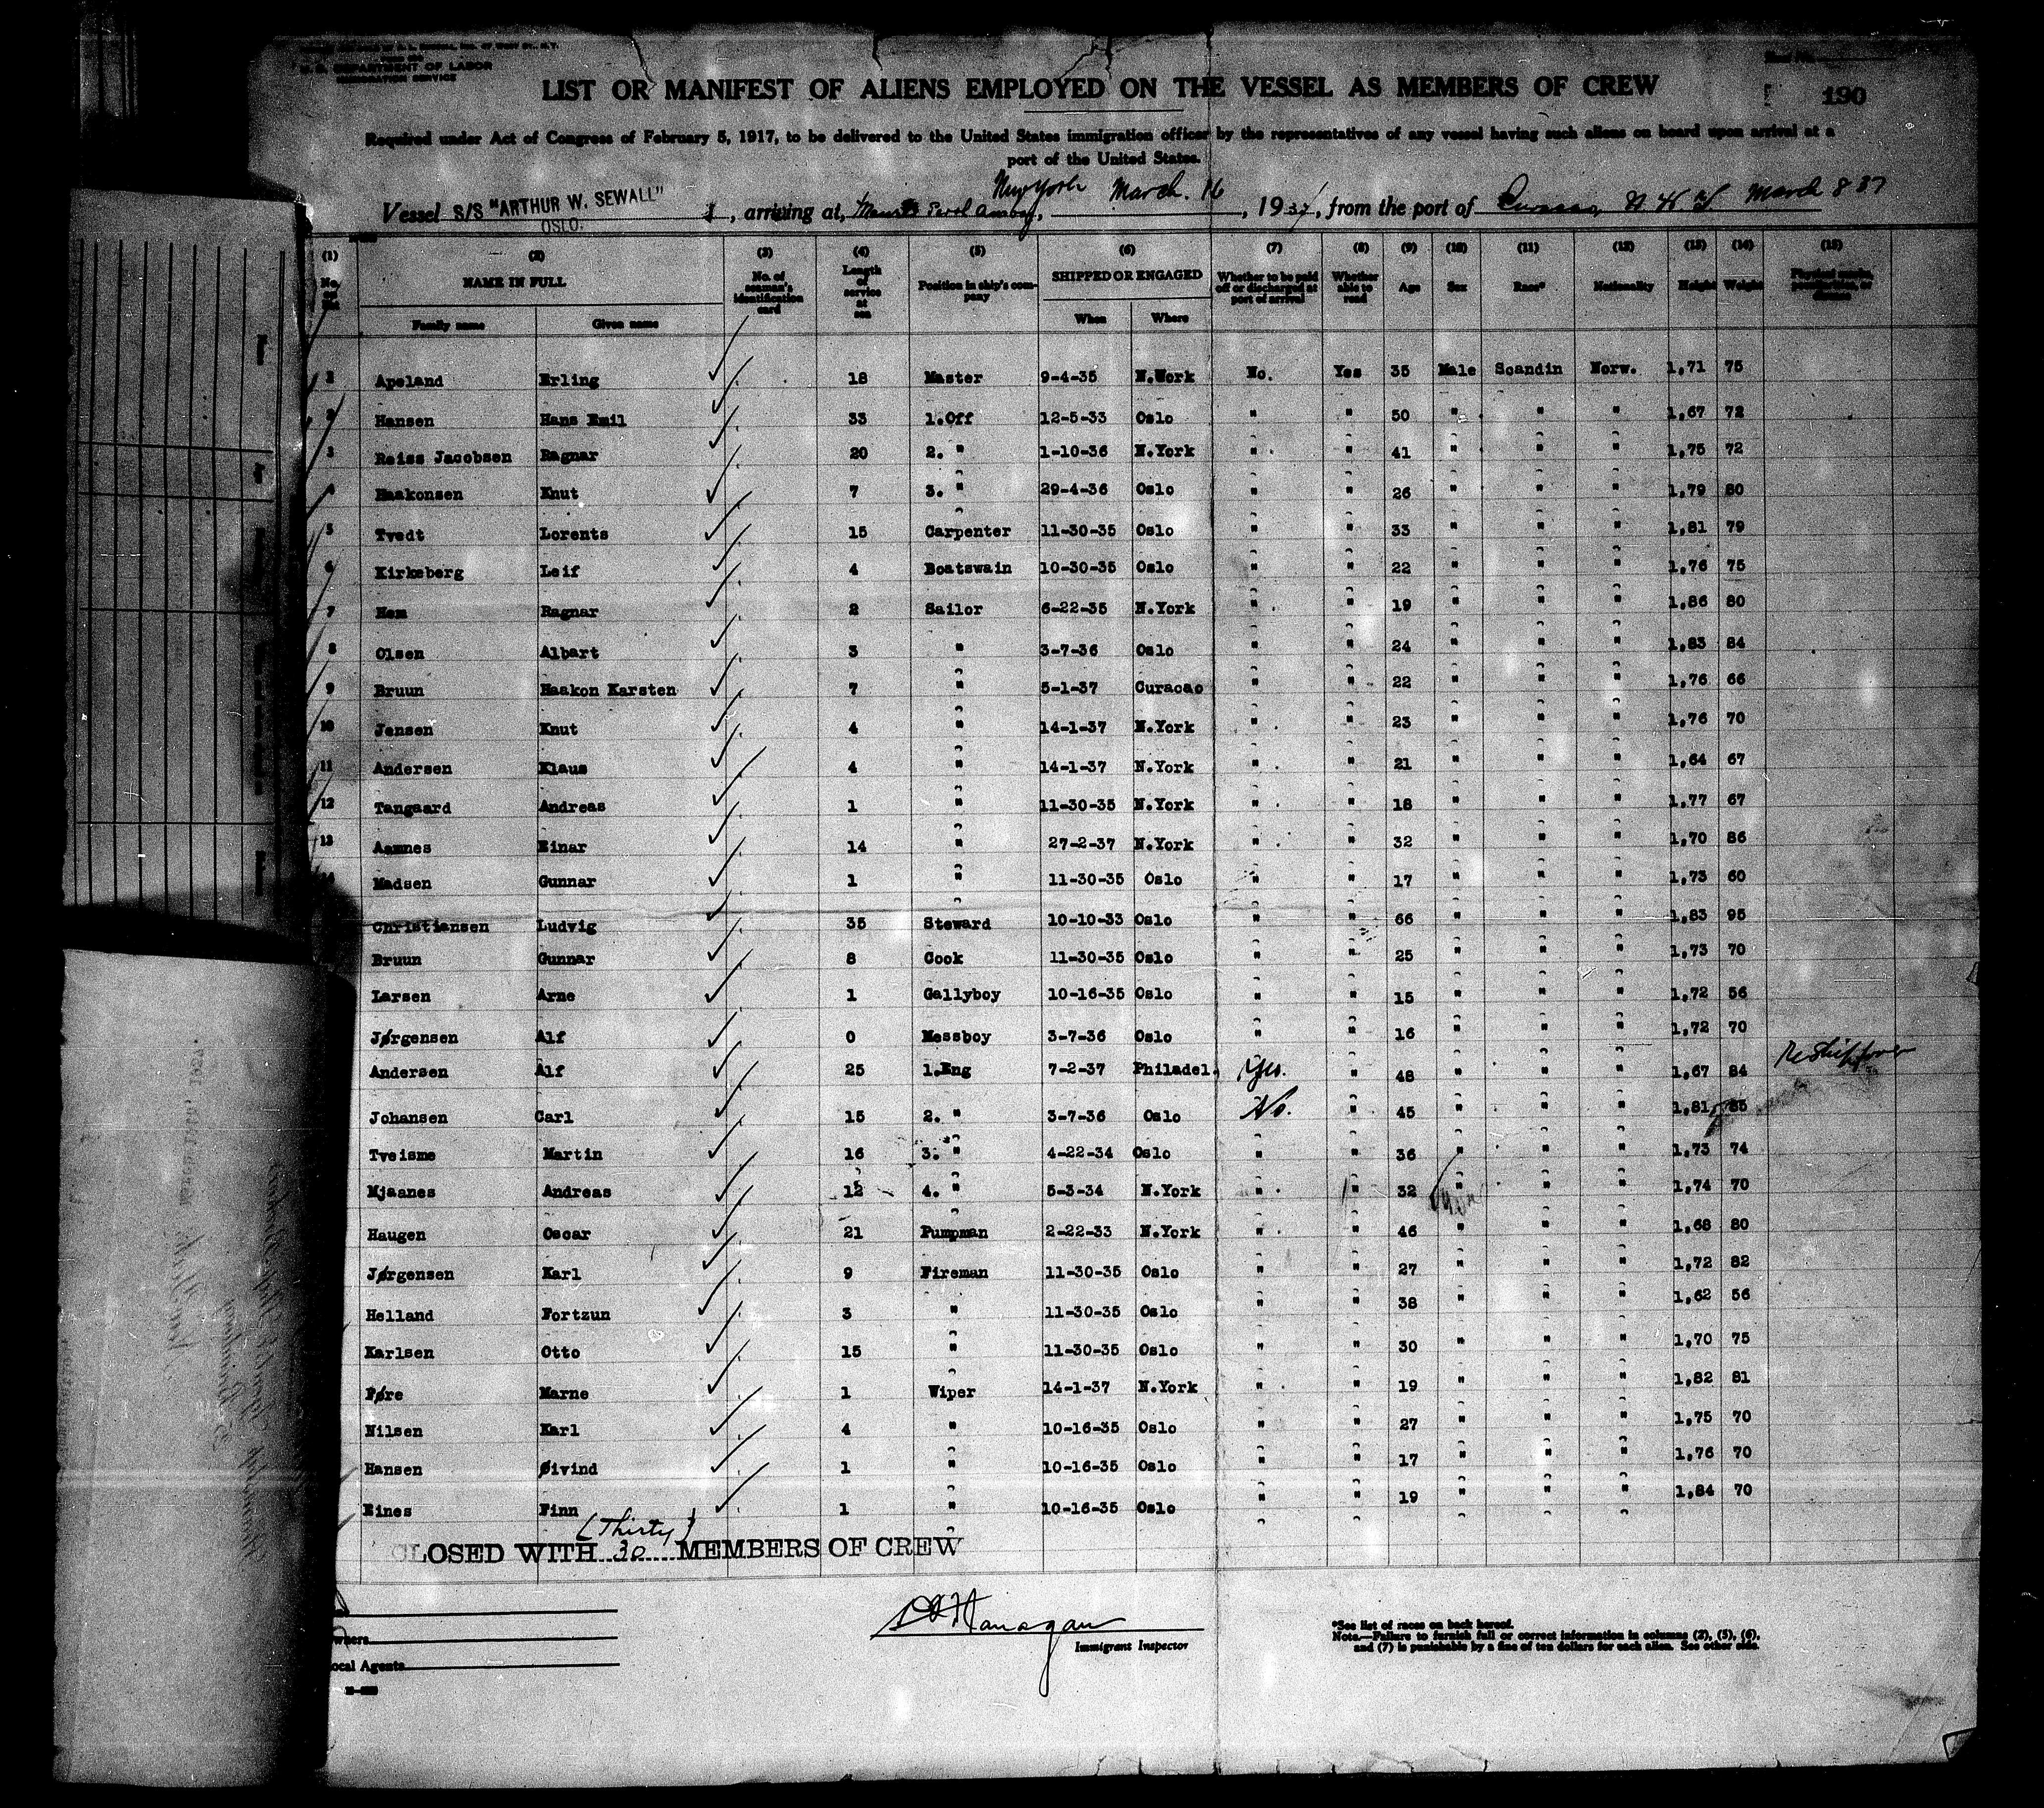 U. S. DEPARTMENT OF LABOR
IMMIGRATION SERVICE
LIST OR MANIFEST OF ALIENS EMPLOYED ON THE VESSEL AS MEMBERS OF CREW
190
Required under Act of Congress of February 5, 1917, to be delivered to the United States immigration officer by the representatives of any vessel having such aliens on board upon arrival at a
port of the United States.
Vessel S/S "ARTHUR W. SEWALL" OSLO. , arriving at, New York March. 16, 1937, from the port of Curacao N. W. I. March 8 37
(1) (2) (3) (4) (5) (6) (7) (8) (9) (10) (11) (12) (13) (14) (15)
No. on list NAME IN FULL Family name Given name No. of seaman's identification card Length of service at sea Position in ship's company SHIPPED OR ENGAGED When Where Whether to be paid off or discharged at port of arrival Whether able to read Age Sex Race* Nationality Height Weight Physical marks, peculiarities, or disease
1 Apeland Erling 18 Master 9-4-35 N.Work No. Yes 35 Male Scandin Norw. 1,71 75
2 Hansen Hans Emil 33 1.Off 12-5-33 Oslo " " 50 " " " 1,67 72
3 Reiss Jacobsen Ragnar 20 2. " 1-10-36 N.York " " 41 " " " 1,75 72
4 Haakonsen Knut 7 3. " 29-4-36 Oslo " " 26 " " " 1,79 80
5 Tvedt Lorents 15 Carpenter 11-30-35 Oslo " " 33 " " " 1,81 79
6 Kirksberg Leif 4 Boatswain 10-30-35 Oslo " " 22 " " " 1,76 75
7 Hem Ragnar 2 Sailor 6-22-35 N.York " " 19 " " " 1,86 80
8 Olsen Albart 3 " 3-7-36 Oslo " " 24 " " " 1,83 84
9 Bruun Haakon Karsten 7 " 5-1-37 Curacao " " 22 " " " 1,76 66
10 Jensen Knut 4 " 14-1-37 N.York " " 23 " " " 1,76 70
11 Andersen Klaus 4 " 14-1-37 N.York " " 21 " " " 1,64 67
12 Tangaard Andreas 1 " 11-30-35 N.York " " 18 " " " 1,77 67
13 Aamnes Einar 14 " 27-2-37 N.York " " 32 " " " 1,70 86
14 Madsen Gunnar 1 " 11-30-35 Oslo " " 17 " " " 1,73 60
Christiansen Ludvig 35 Steward 10-10-33 Oslo " " 66 " " " 1,83 95
Bruun Gunnar 8 Cook 11-30-35 Oslo " " 25 " " " 1,73 70
Larsen Arne 1 Gallyboy 10-16-35 Oslo " " 15 " " " 1,72 56
Jørgensen Alf 0 Messboy 3-7-36 Oslo " " 16 " " " 1,72 70
Andersen Alf 25 1.Eng 7-2-37 Philadel. Yes. " 48 " " " 1,67 84
Johansen Carl 15 2. " 3-7-36 Oslo No. " 45 " " " 1,81 85
Tveisme Martin 16 3. " 4-22-34 Oslo " " 36 " " " 1,73 74
Mjaanes Andreas 12 4. " 5-3-34 N.York " " 32 " " " 1,74 70
Haugen Oscar 21 Pumpman 2-22-33 N.York " " 46 " " " 1,68 80
Jørgensen Karl 9 Fireman 11-30-35 Oslo " " 27 " " " 1,72 82
Helland Fortzun 3 " 11-30-35 Oslo " " 38 " " " 1,62 56
Karlsen Otto 15 " 11-30-35 Oslo " " 30 " " " 1,70 75
Føre Marne 1 Wiper 14-1-37 N.York " " 19 " " " 1,82 81
Nilsen Karl 4 " 10-16-35 Oslo " " 27 " " " 1,75 70
Hansen Øivind 1 " 10-16-35 Oslo " " 17 " " " 1,76 70
Eines Finn 1 " 10-16-35 Oslo " " 19 " " " 1,84 70
(Thirty)
CLOSED WITH 30 MEMBERS OF CREW
Immigrant Inspector
wners
ocal Agents
*See list of races on back hereof.
Note.—Failure to furnish full or correct information in columns (2), (5), (6),
and (7) is punishable by a fine of ten dollars for each alien. See other side.